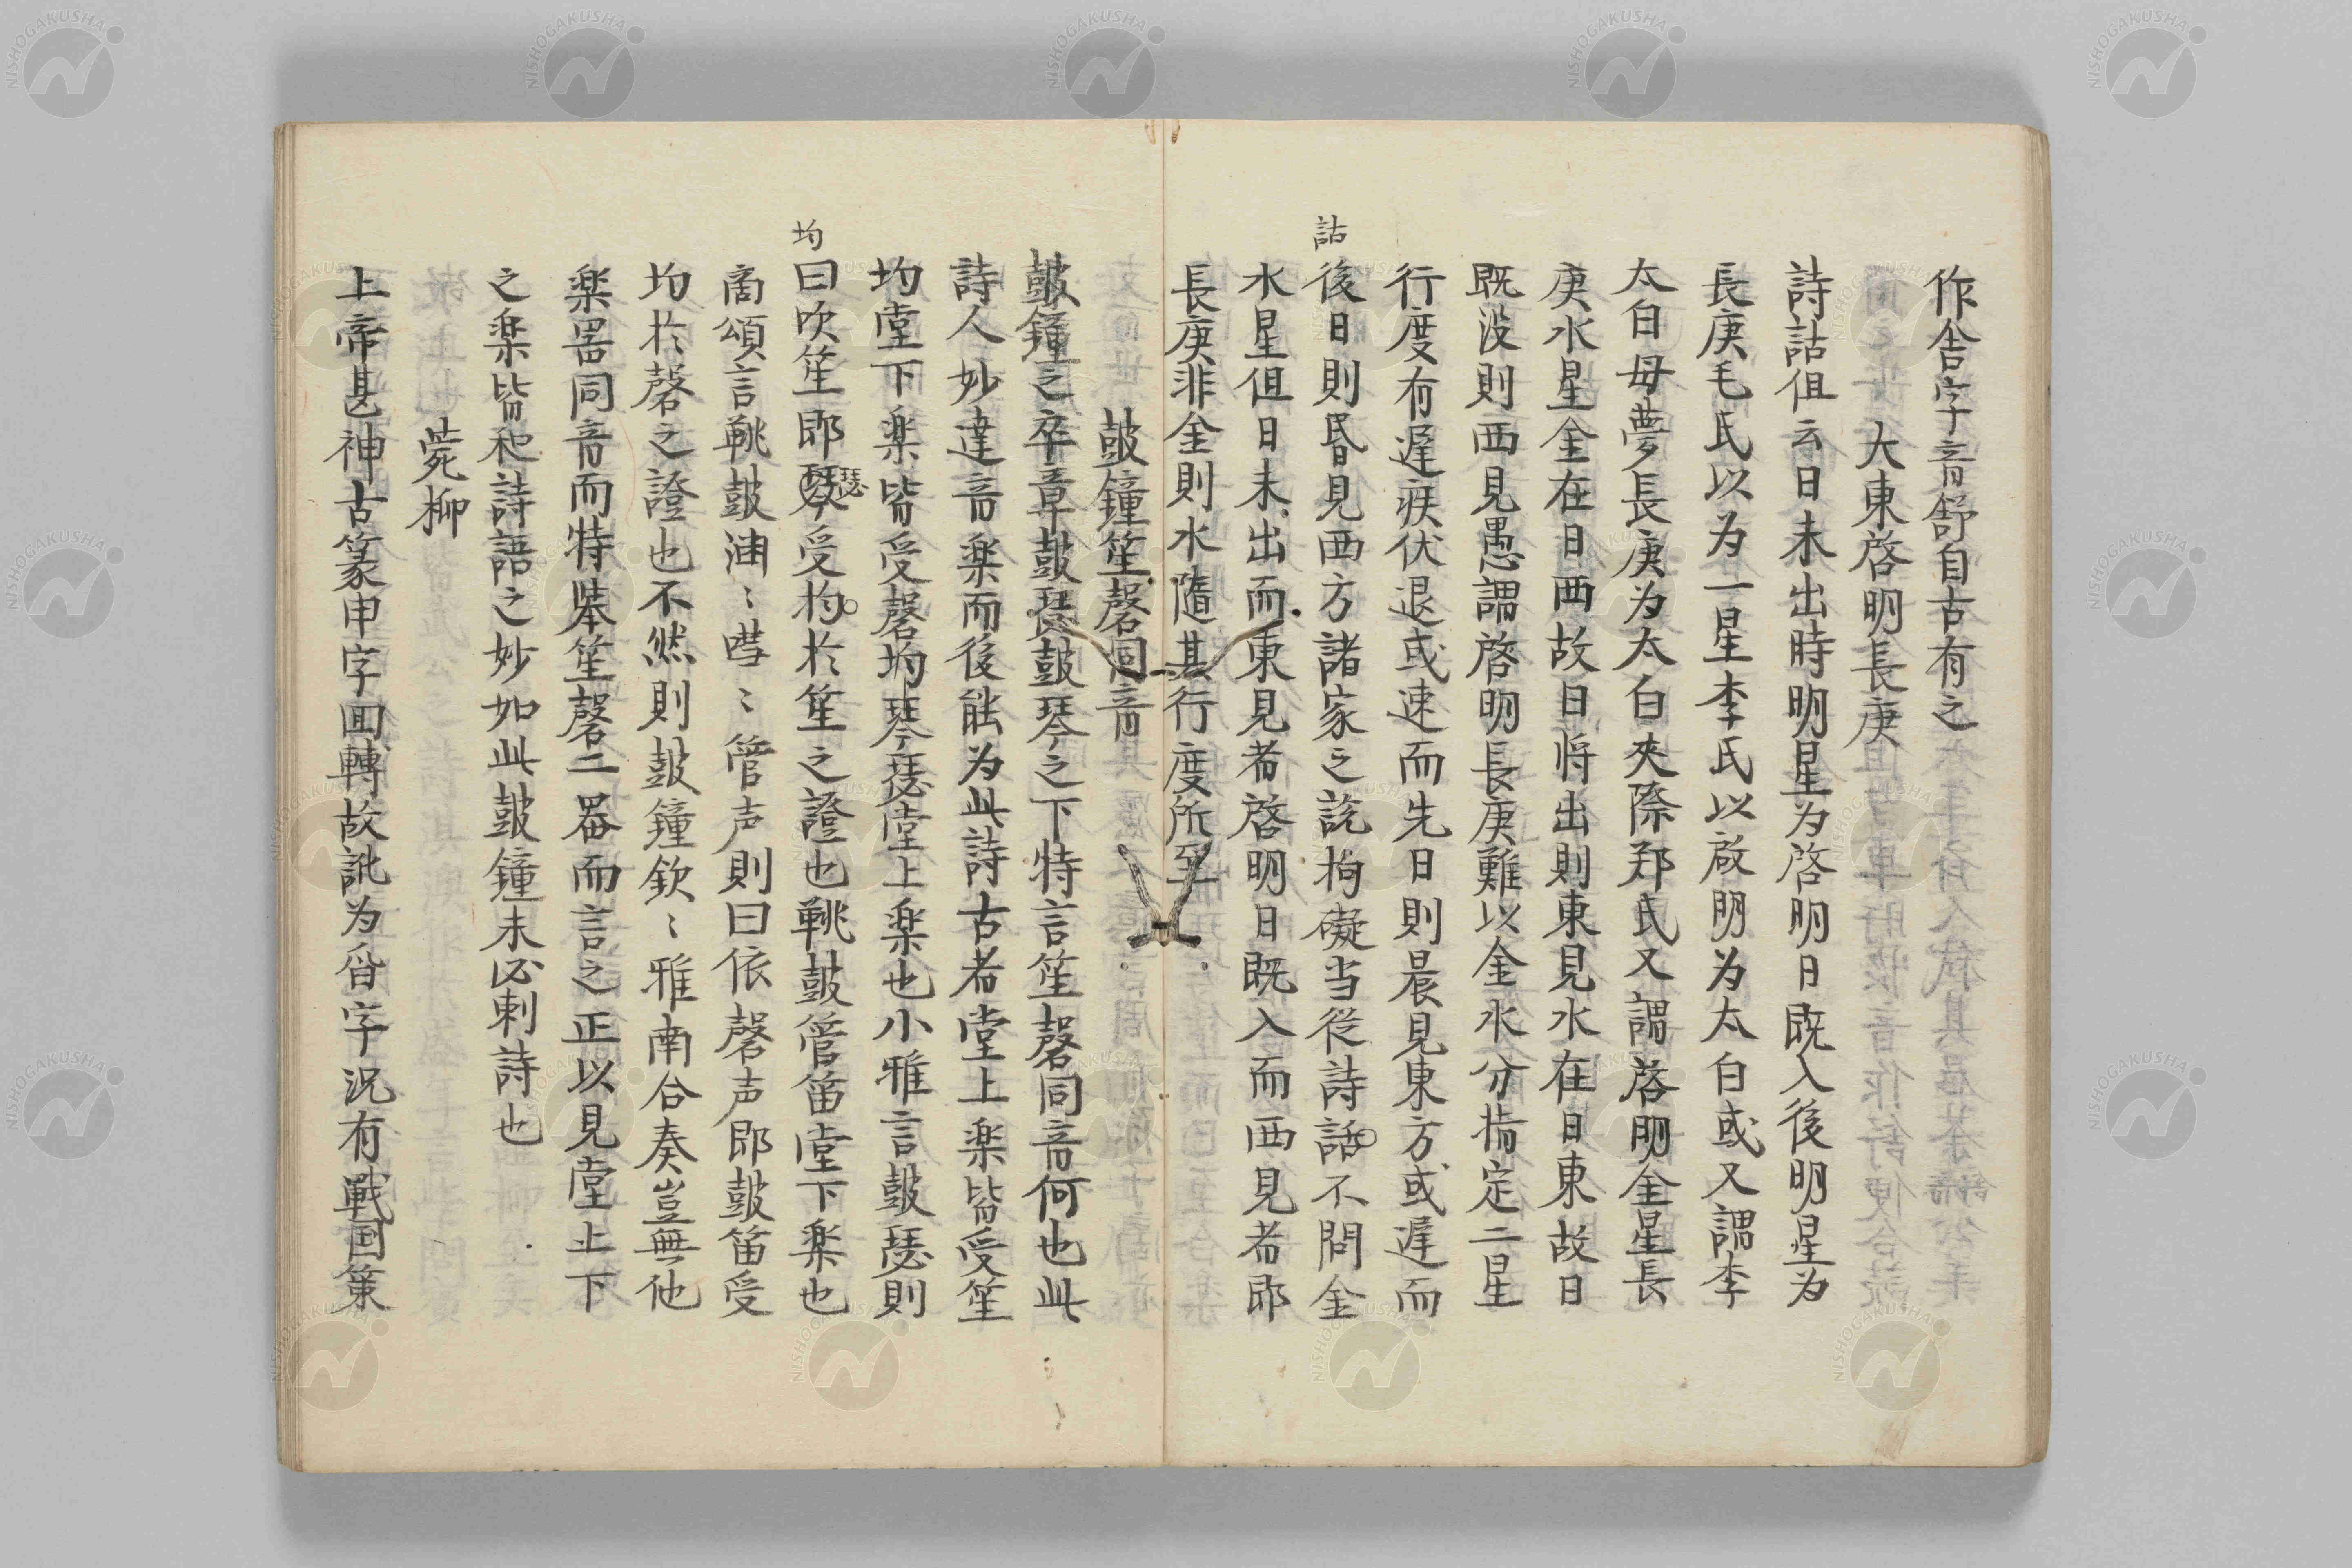 作舎字音舒自古有之
大東啓明長庚
詩詁但云日未出時明星为啓明日既入後明星为
長庚毛氏以为一星李氏以啟明为太白或又謂李
太白母夢長庚为太白夾際郑氏又謂啓明金星長
庚水星金在日西故日将出則東見水在日東故日
既没則西見愚謂啓明長庚難以金水分指定二星
行度有遅疾伏退或速而先日則晨見東方或遅而
後日則昏見西方諸家之説拘礙当從詩話不問金
詁
水星但日未出而東見者啓明日既入而西見者即
長庚非金則水隨其行度所至
鼓鐘笙磬同音
鼓鐘之卒章鼓瑟鼓琴之下特言笙磬同音何也此
詩人妙達音楽而後能为此詩古者堂上楽皆受笙
均堂下楽皆受磬均琴瑟堂上楽也小雅言鼓瑟則
均
曰吹笙即琴瑟受杓於笙之證也鞉鼓管笛堂下楽也
啇頌言鞉鼓淵〻嘒〻管声則曰依磬声即鼓笛受
均於磬之證也不然則鼓鐘欽〻雅南合奏豈無他
楽器同音而特挙笙磬二器而言之正以見堂上下
之楽皆和詩語之妙如此鼓鐘未必刺詩也
菀柳
上帝甚神古篆申字囬轉故訛为㕻字况有戦国策
NISHOGAKUSHA